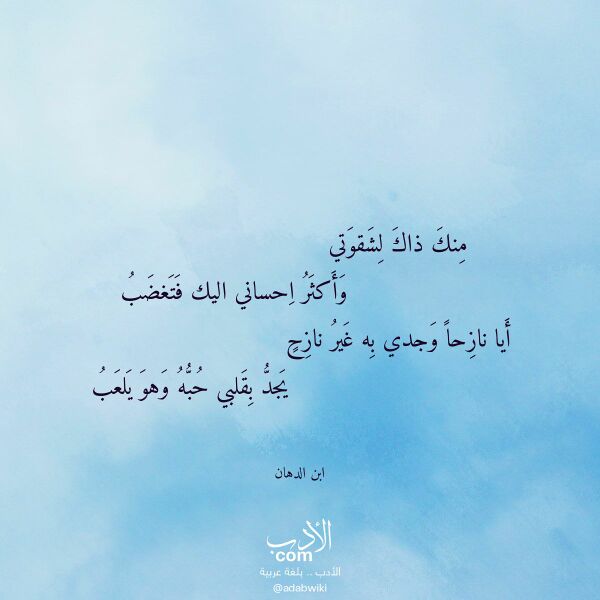 مِنكَ ذاكَ لِشَقوَتي
وَأَكثَرُ اِحساني اليك فَتَغضَبُ
أَيا نازِحاً وَجدي بِه غَيرُ نازِحٍ
يَجدُّ بِقَلبي حُبُّهُ وَهوَ يَلعَبُ
ابن الدهان
الأدب
com
الأدب .. بلغة عربية
@adabwiki